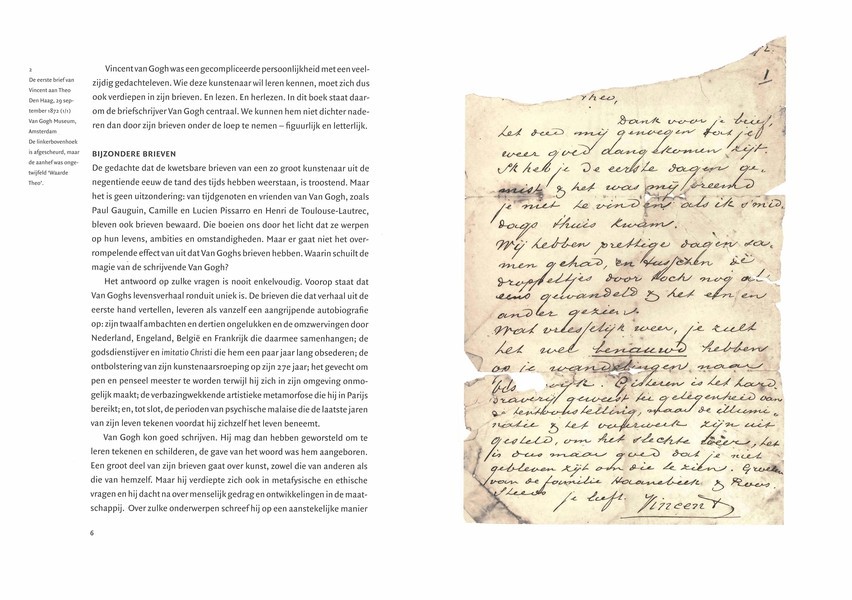 2
De eerste brief van
Vincent aan Theo
Den Haag, 29 sep-
tember 1872 (1/1)
Van Gogh Museum,
Amsterdam
De linkerbovenhoek
is afgescheurd, maar
de aanhef was onge-
twijfeld ‘Waarde
Theo’.
Vincent van Gogh was een gecompliceerde persoonlijkheid met een veel-
zijdig gedachteleven. Wie deze kunstenaar wil leren kennen, moet zich dus
ook verdiepen in zijn brieven. En lezen. En herlezen. In dit boek staat daar-
om de briefschrijver Van Gogh centraal. We kunnen hem niet dichter nade-
ren dan door zijn brieven onder de loep te nemen – figuurlijk en letterlijk.
BIJZONDERE BRIEVEN
De gedachte dat de kwetsbare brieven van een zo groot kunstenaar uit de
negentiende eeuw de tand des tijds hebben weerstaan, is troostend. Maar
het is geen uitzondering: van tijdgenoten en vrienden van Van Gogh, zoals
Paul Gauguin, Camille en Lucien Pissarro en Henri de Toulouse-Lautrec,
bleven ook brieven bewaard. Die boeien ons door het licht dat ze werpen
op hun levens, ambities en omstandigheden. Maar er gaat niet het over-
rompelende effect van uit dat Van Goghs brieven hebben. Waarin schuilt de
magie van de schrijvende Van Gogh?
Het antwoord op zulke vragen is nooit enkelvoudig. Voorop staat dat
Van Goghs levensverhaal ronduit uniek is. De brieven die dat verhaal uit de
eerste hand vertellen, leveren als vanzelf een aangrijpende autobiografie
op: zijn twaalf ambachten en dertien ongelukken en de omzwervingen door
Nederland, Engeland, België en Frankrijk die daarmee samenhangen; de
godsdienstijver en imitatio Christi die hem een paar jaar lang obsedeer; de
ontbolstering van zijn kunstenaarsroeping op zijn 27e jaar; het gevecht om
pen en penseel meester te worden terwijl hij zich in zijn omgeving onmo-
gelijk maakt; de verbazingwekkende artistieke metamorfose die hij in Parijs
bereikt; en, tot slot, de perioden van psychische malaise die de laatste jaren
van zijn leven tekenen voordat hij zichzelf het leven beneemt.
Van Gogh kon goed schrijven. Hij mag dan hebben geworsteld om te
leren tekenen en schilderen, de gave van het woord was hem aangeboren.
Een groot deel van zijn brieven gaat over kunst, zowel die van anderen als
die van hemzelf. Maar hij verdiepte zich ook in metafysische en ethische
vragen en hij dacht na over menselijk gedrag en ontwikkelingen in de maat-
schappij. Over zulke onderwerpen schreef hij op een aanstekelijke manier
6
1
Theo,
Dank voor je brief,
het deed mij genoegen dat je
weer goed aangekomen zijt.
Ik heb je de eerste dagen ge-
mist & het was mij vreemd
je niet te vinden als ik s'mid-
dags thuis kwam.
Wij hebben prettige dagen sa-
men gehad, en tusschen de
droppeltjes door toch nog al
eens gewandeld & het een en
ander gezien.
Wat vreesselijk weer, je zult
het wel benauwd hebben
op je wandelingen naar
wijk. Gisteren is het hard-
draverij geweest ter gelegenheid van
de tentoonstelling, maar de illumi-
natie & het vuurwerk zijn uit
gesteld, om het slechte weer, het
is dus maar goed dat je niet
gebleven zijt om die te zien. Groeten
van de familie Haanebeek & Roos.
Steeds
je liefh. Vincent